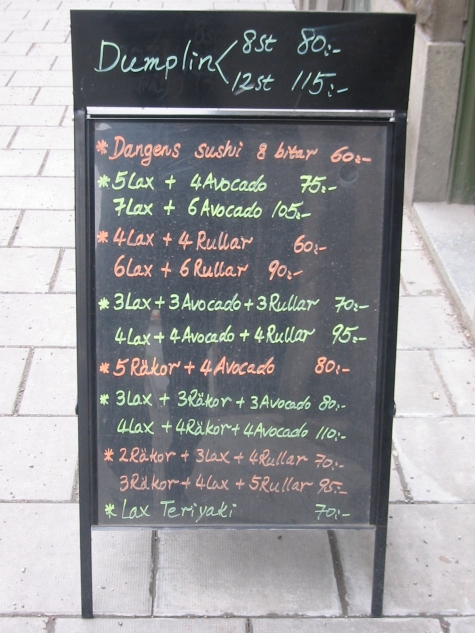 Dumplin< 8st 80:-
12st 115:-
* Dangens sushi 8 bitar 60:-
* 5Lax + 4Avocado 75:-
7Lax + 6Avocado 105:-
* 4Lax + 4Rullar 60:-
6Lax + 6Rullar 90:-
* 3Lax + 3Avocado + 3Rullar 70:-
4Lax + 4Avocado + 4Rullar 95:-
* 5Räkor + 4Avocado 80:-
* 3Lax + 3Räkor + 3Avocado 80:-
4Lax + 4Räkor + 4Avocado 110:-
* 2Räkor + 3Lax + 4Rullar 70:-
3Räkor + 4Lax + 5Rullar 95:-
* Lax Teriyaki 70:-